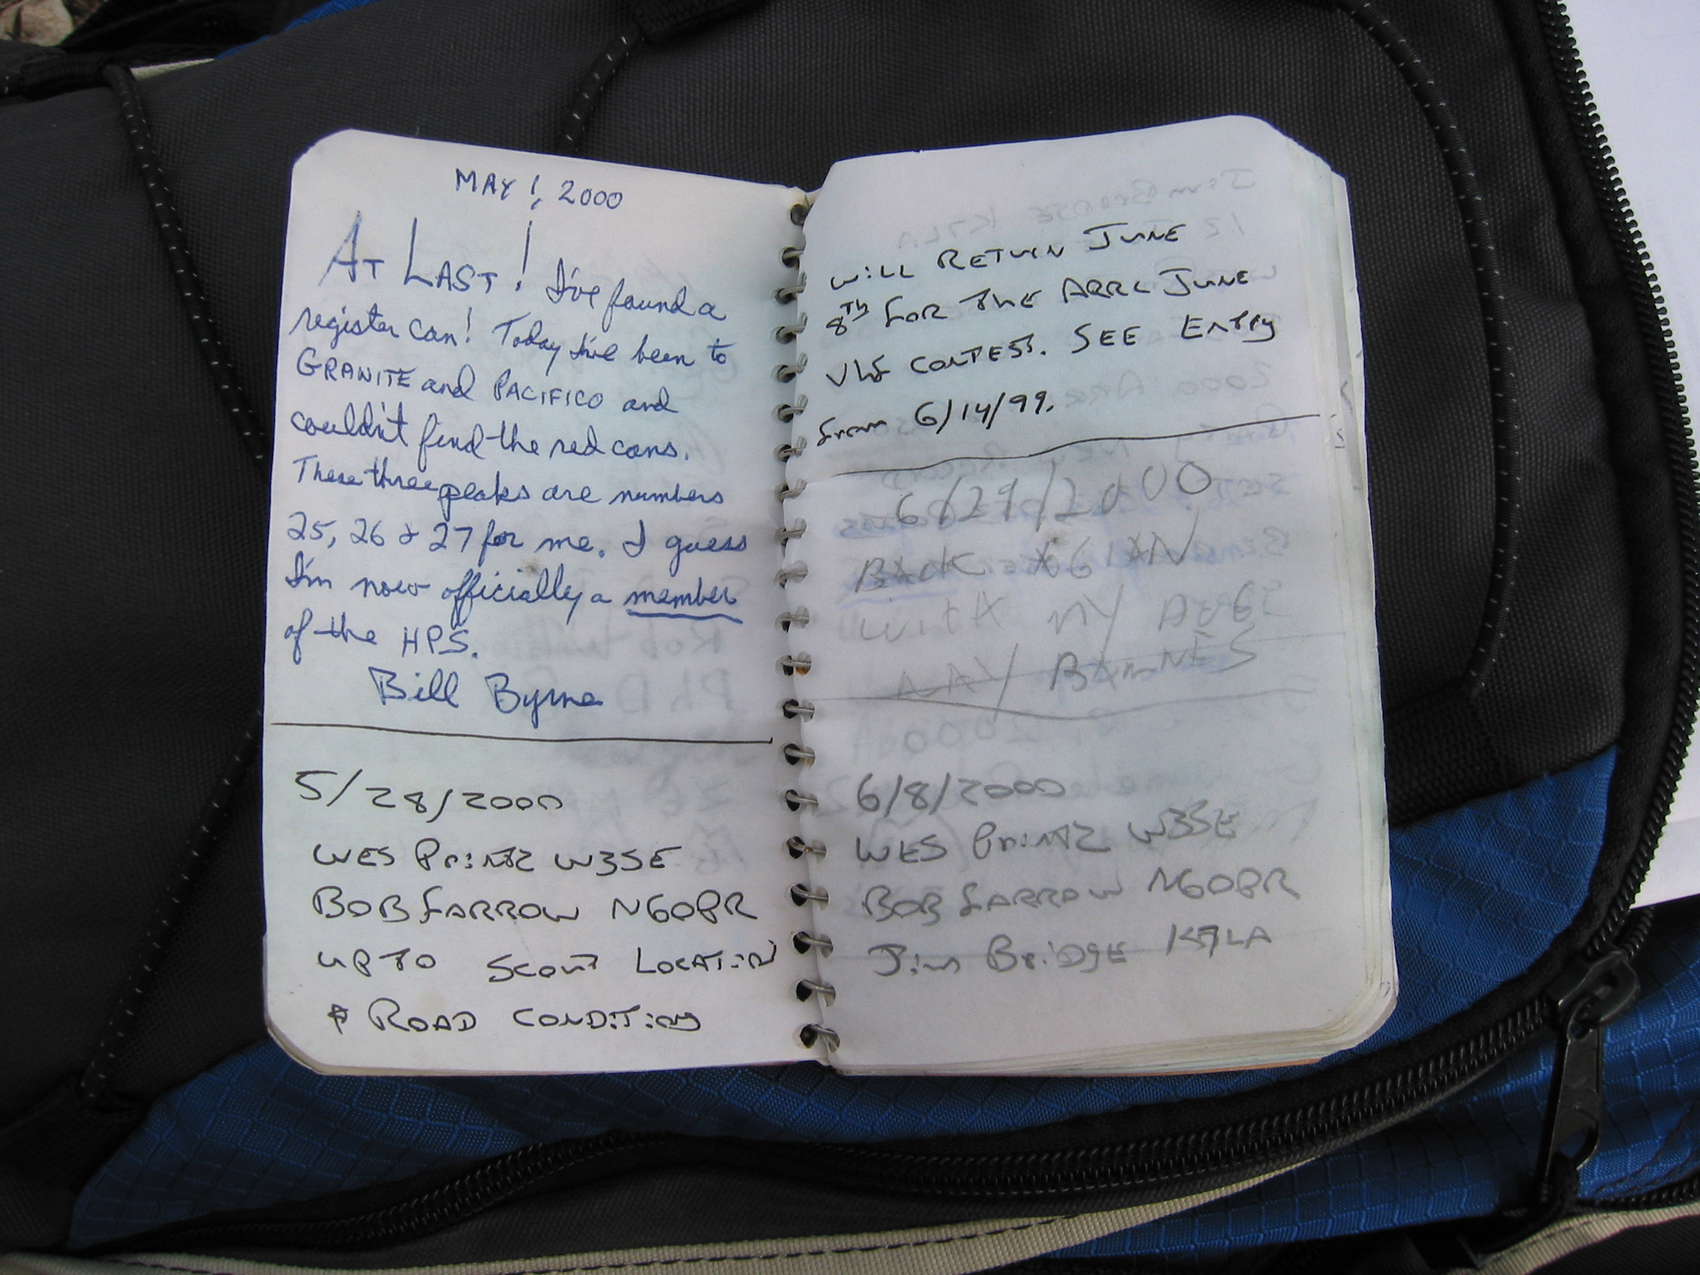 MAY 1, 2000
AT LAST! I've found a
register can! Today I've been to
GRANITE and PACIFICO and
couldn't find the red cans.
These three peaks are numbers
25, 26 & 27 for me. I guess
I'm now officially a member
of the HPS.
Bill Byrne
5/28/2000
WES Printz W3SE
BOB FARROW N6OPR
UP TO SCOUT LOCATION
& ROAD CONDITION
Will RETURN JUNE
8TH FOR THE ARRL JUNE
VHF CONTEST. SEE Entry
from 6/14/99.
6/29/2000
BACK AGIAN
WITH MY
BARNES
6/8/2000
WES Printz W3SE
BOB FARROW N6OPR
Jim BriDgE K7LA